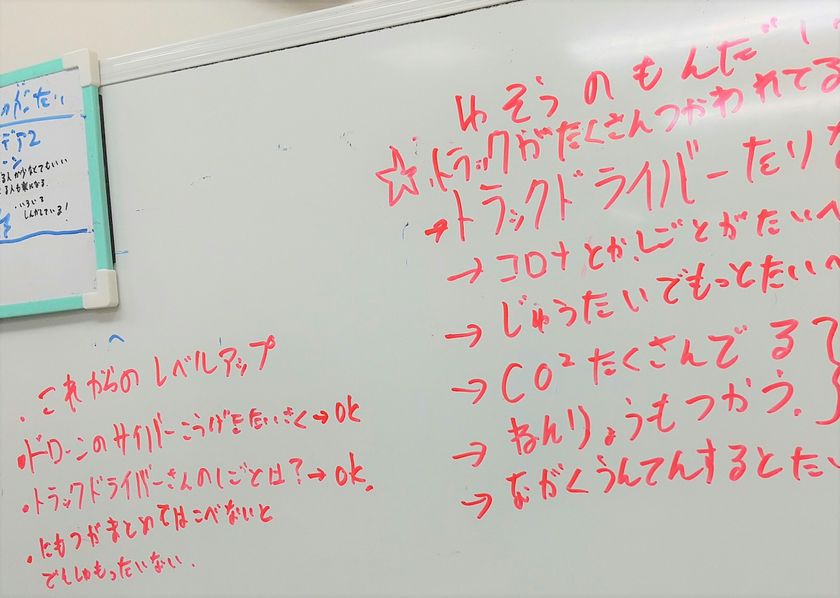 がたい
デア2
ーン
る人が少なくてもいい
る人も楽になる
・いろいろ
しんかしている!
ゆそうのもんだい
☆トラックがたくさんつかわれてる
→トラックドライバーたりな
→コロナとか、しごとがたいへ
→じゅうたいでもっとたいへ
→CO²たくさんでる
→ねんりょうもつかう。
→ながくうんてんするとたい
・これからのレベルアップ
・ドローンのサイバーこうげきたいさく→OK
・トラックドライバーさんのしごとは?→OK.
・にもつがまとめてはこべないと
でんしゃもったいない.